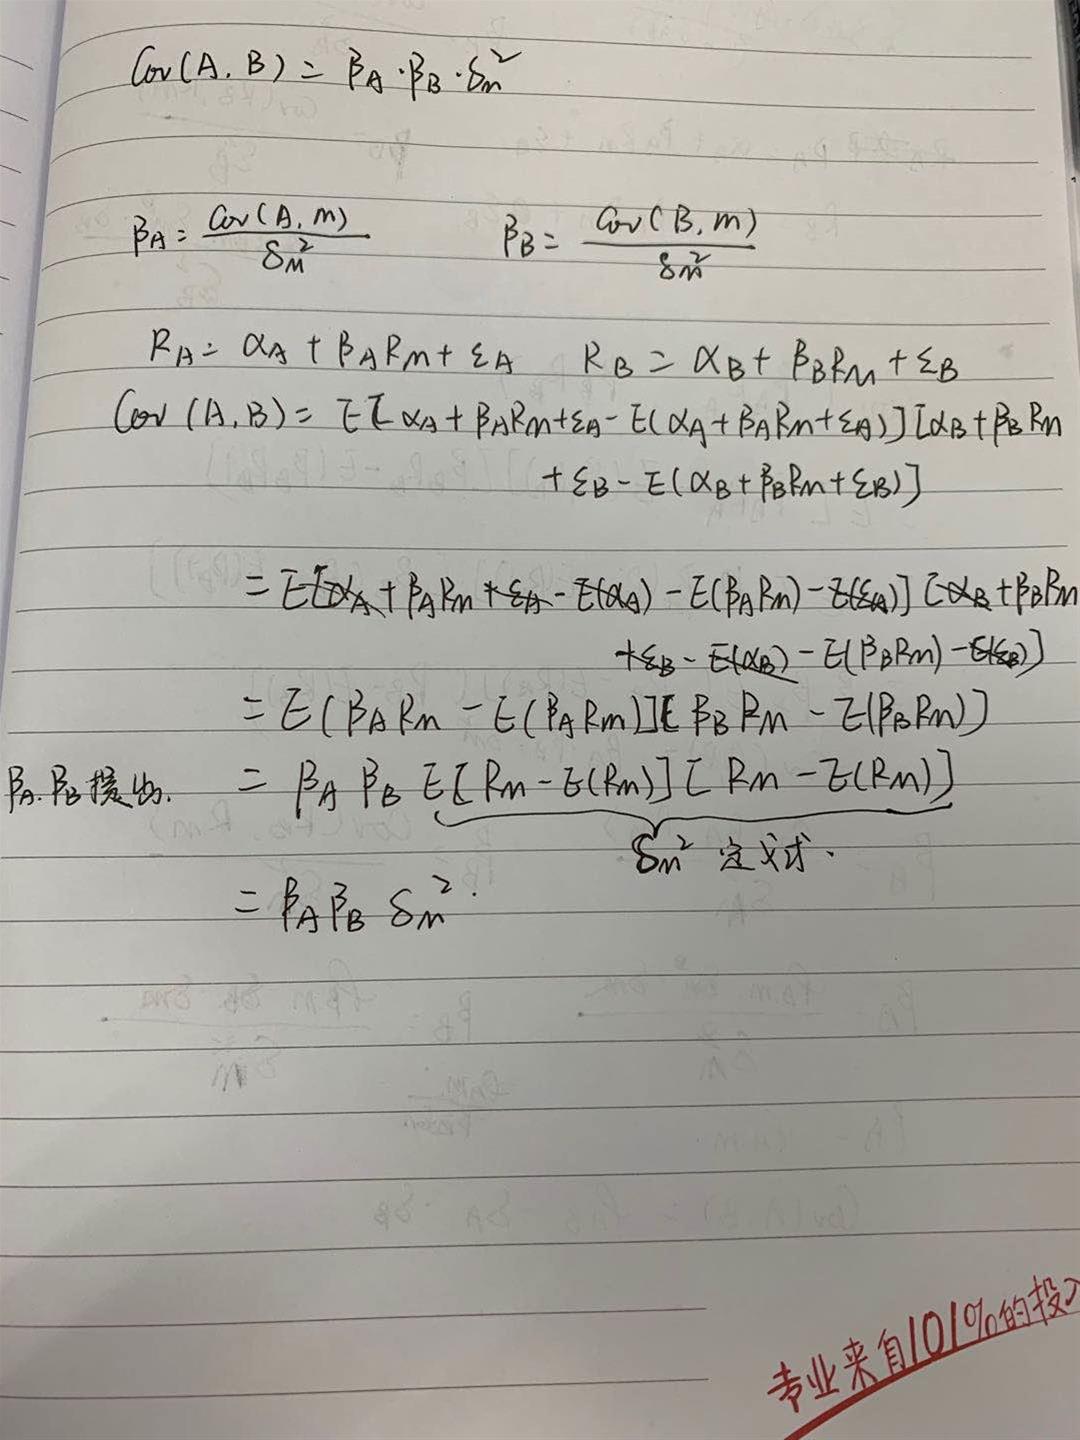 Cov(A, B) = βA · βB · δm²
βA = Cov(A, m) / δm²    βB = Cov(B, m) / δm²
RA = αA + βARm + εA    RB = αB + βBRm + εB
Cov(A, B) = E[αA + βARm + εA - E(αA + βARm + εA)][αB + βBRm
+ εB - E(αB + βBRm + εB)]
= E[αA + βARm + εA - E(αA) - E(βARm) - E(εA)][αB + βBRm
+ εB - E(αB) - E(βBRm) - E(εB)]
= E(βARm - E(βARm)][βBRm - E(βBRm)]
βA. βB 提出. = βA βB E[Rm - E(Rm)][Rm - E(Rm)]
δm² 定义式.
= βAβB δm².
专业来自101%的投入